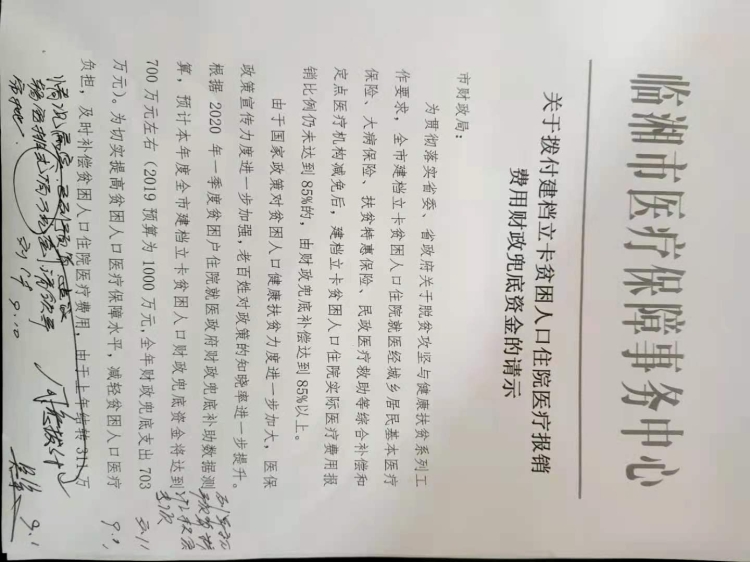 临湘市医疗保障事务中心
关于拨付建档立卡贫困人口住院医疗报销
费用财政兜底资金的请示
市财政局：
为贯彻落实省委、省政府关于脱贫攻坚与健康扶贫系列工
作要求，全市建档立卡贫困人口住院就医经城乡居民基本医疗
保险、大病保险、扶贫特惠保险、民政医疗救助等综合补偿和
定点医疗机构减免后，建档立卡贫困人口住院实际医疗费用报
销比例仍未达到85%的，由财政兜底补偿达到85%以上。
由于国家政策对贫困人口健康扶贫力度进一步加大，医保
政策宣传力度进一步加强，老百姓对政策的知晓率进一步提升。
根据 2020 年一季度贫困户住院就医政府财政兜底补助数据测
算，预计本年度全市建档立卡贫困人口财政兜底资金将达到
700 万元左右（2019 预算为 1000 万元，全年财政兜底支出 703
万元）。为切实提高贫困人口医疗保障水平，减轻贫困人口医疗
负担，及时补偿贫困人口住院医疗费用，由于上年结转 311 万
情况属实
9.10
9.1
9.1